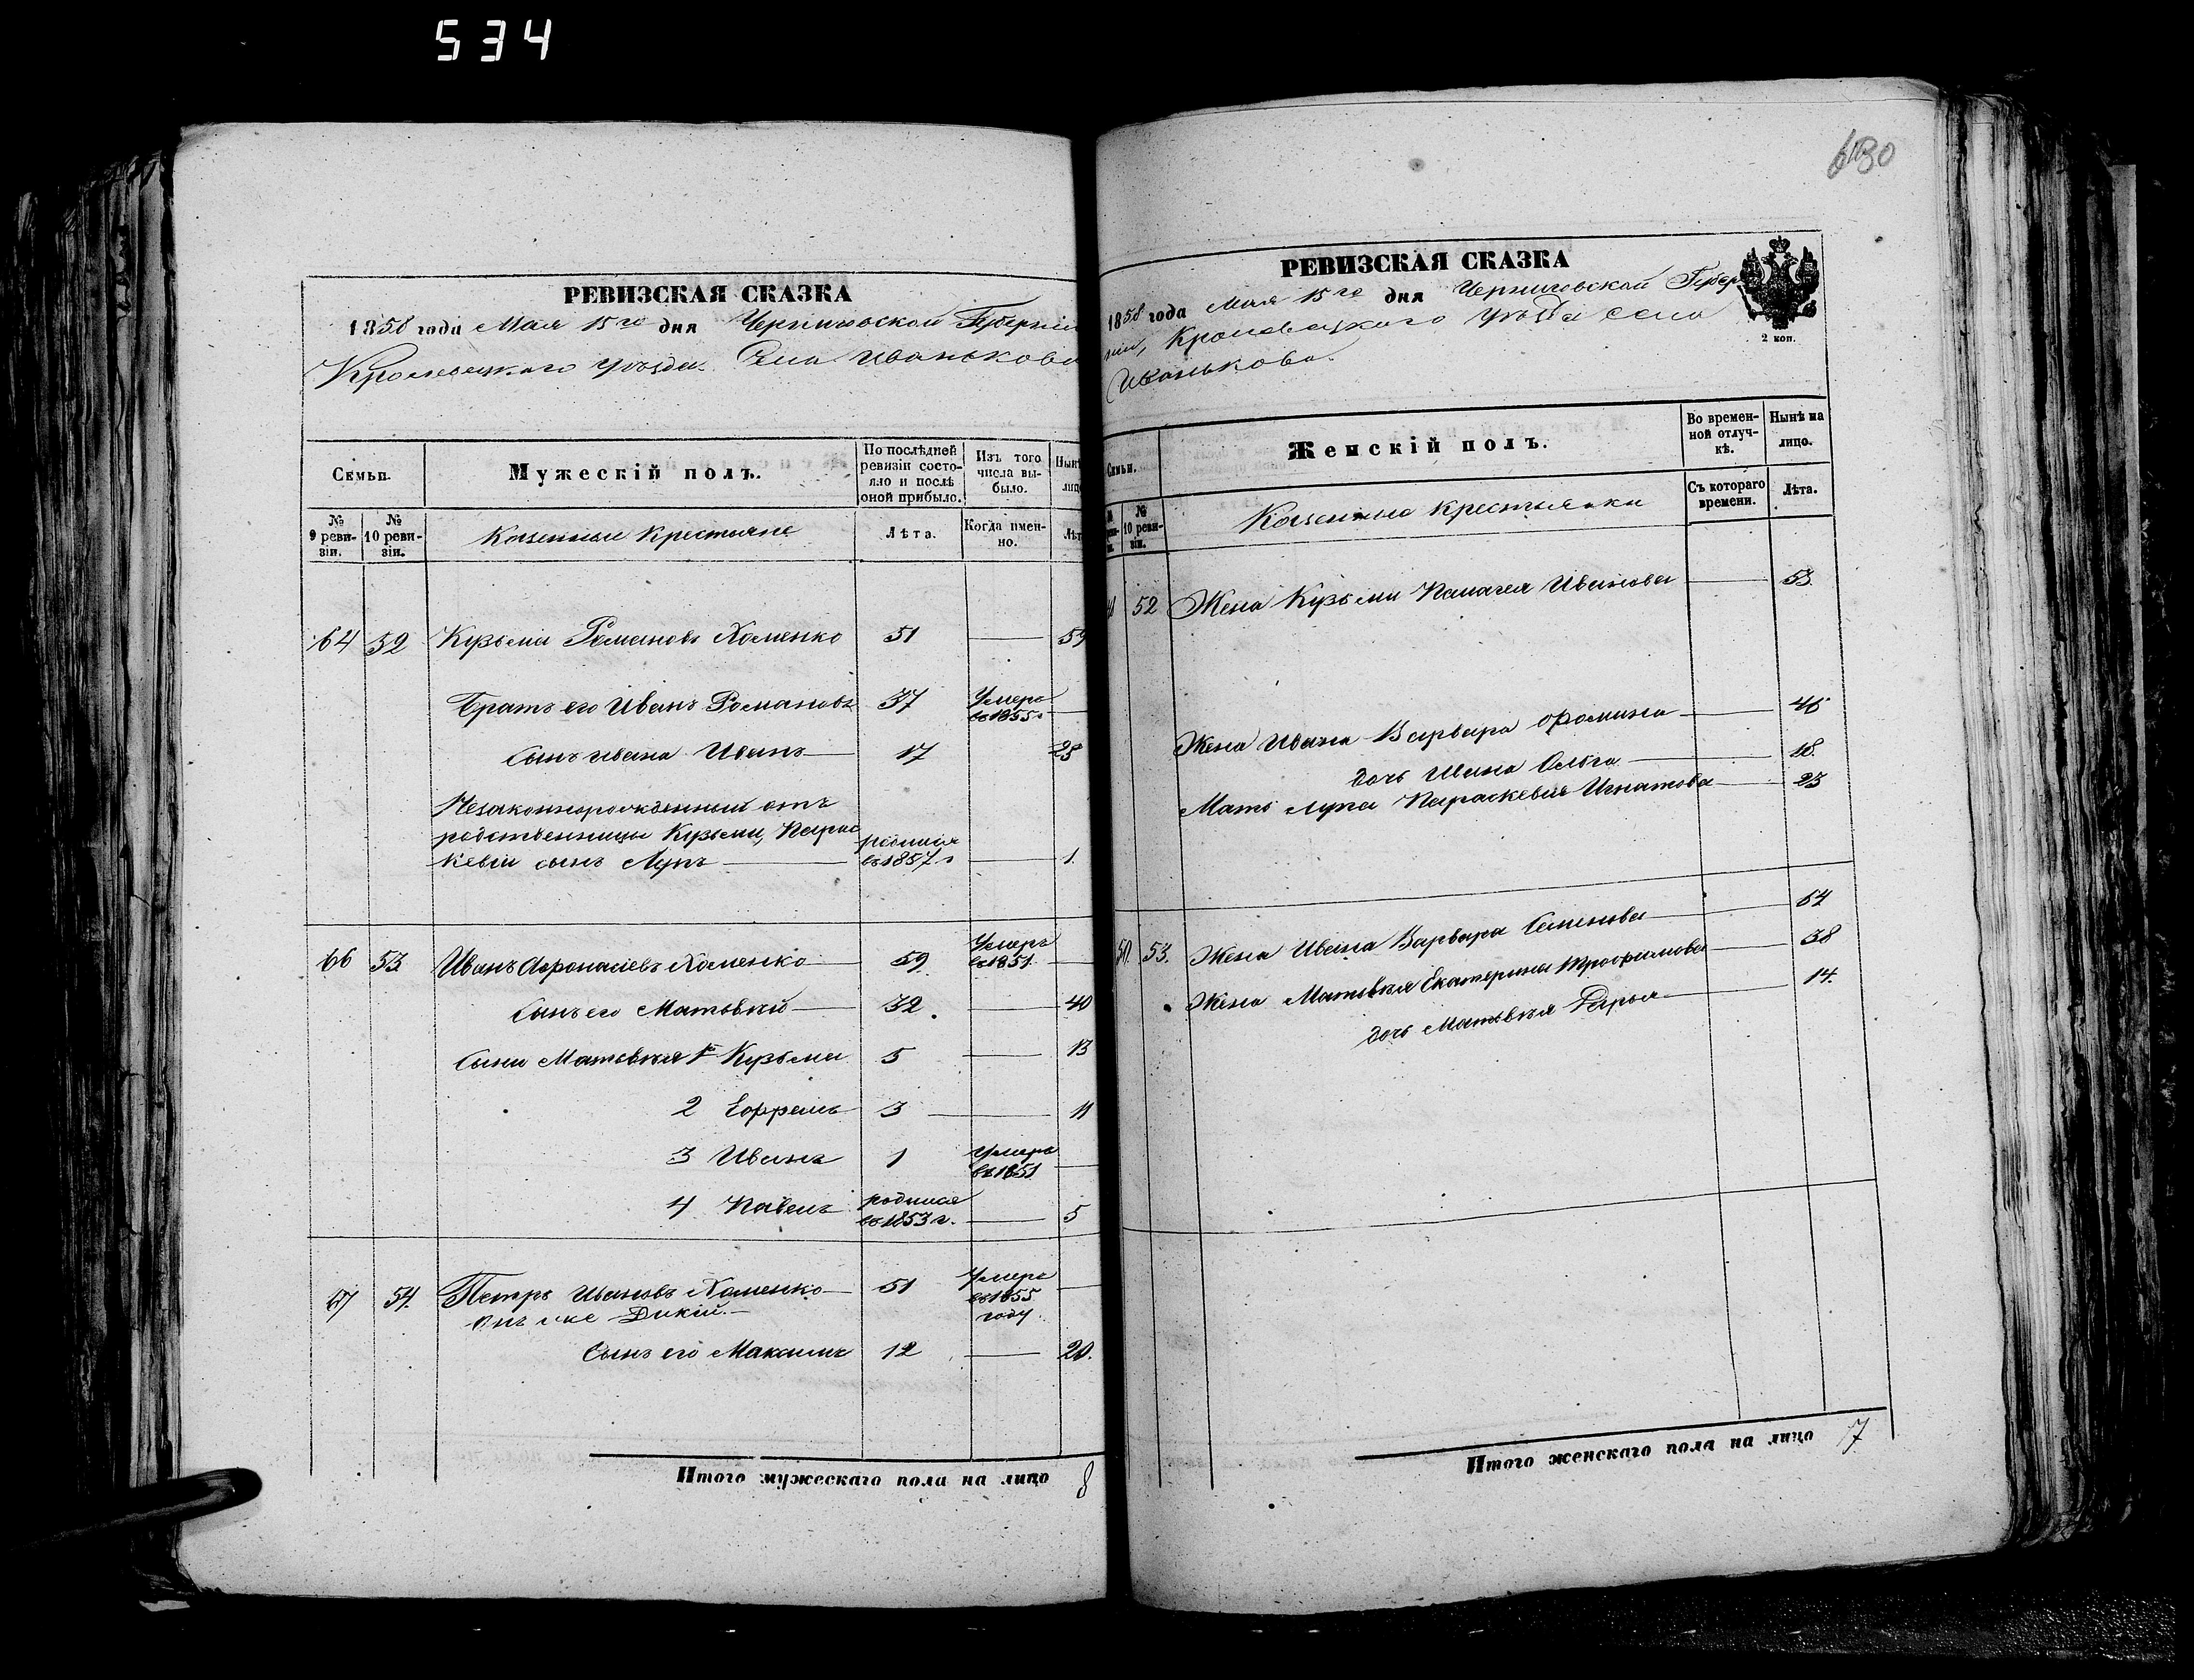 534
630
РЕВИЗСКАЯ СКАЗКА
1858 года Мая 15го дня Черниговской Губерніи
Кролевецкаго уѣзда Села Иванькова
Семьи.
Мужескій полъ.
По послѣдней ревизіи состояло и послѣ оной прибыло.
Изъ того числа выбыло.
Нынѣ
лицо
№ 9 ревизіи.
№ 10 ревизіи.
Казенные Крестьяне
Лѣта.
Когда именно.
Лѣт
64 52 Кузьма Романовъ Хоменко 51 — 59
Братъ его Иванъ Романовъ 37 Умеръ въ 1855 г —
Сынъ Ивана Иванъ — 17 25
Незаконнорожденный отъ
родственницы Кузьмы, Парас
кевіи сынъ Лупъ — родился въ 1857 г — 1.
66 53 Иванъ Афонасіевъ Хоменко — 59. Умеръ въ 1851. —
Сынъ его Матвѣй — 32. — 40
Сыны Матвѣя 1й Кузьма 5 — 13
2 Ефремъ 3 — 11
3 Иванъ 1 Умеръ въ 1851 —
4 Павелъ родился въ 1853 г. — 5
67 54. Петръ Ивановъ Хоменко — 51 Умеръ въ 1855 году. —
онъ же Дикій. —
Сынъ его Максимъ 12 — 20.
Итого мужескаго пола на лицо 8
РЕВИЗСКАЯ СКАЗКА
1858 года Мая 15го дня Черниговской Губер
ніи, Кролевецкаго уѣзда села
Иванькова.
2 коп.
Семьи.
Женскій полъ.
Во временной отлучкѣ.
Нынѣ на лицо.
№ 10 ревизіи.
Казенные крестьянки
Съ котораго времени.
Лѣта.
52 Жена Кузьмы Пелагея Иванова — 53
Жена Ивана Варвара Фомина — 45
дочь Ивана Ольга — 18.
Мать Лупа Параскевія Игнатова — 23
53. Жена Ивана Варвара Семенова — 64
Жена Матвѣя Екатерина Трофимова — 38
дочь Матвѣя Дарья — 14.
Итого женскаго пола на лицо 7